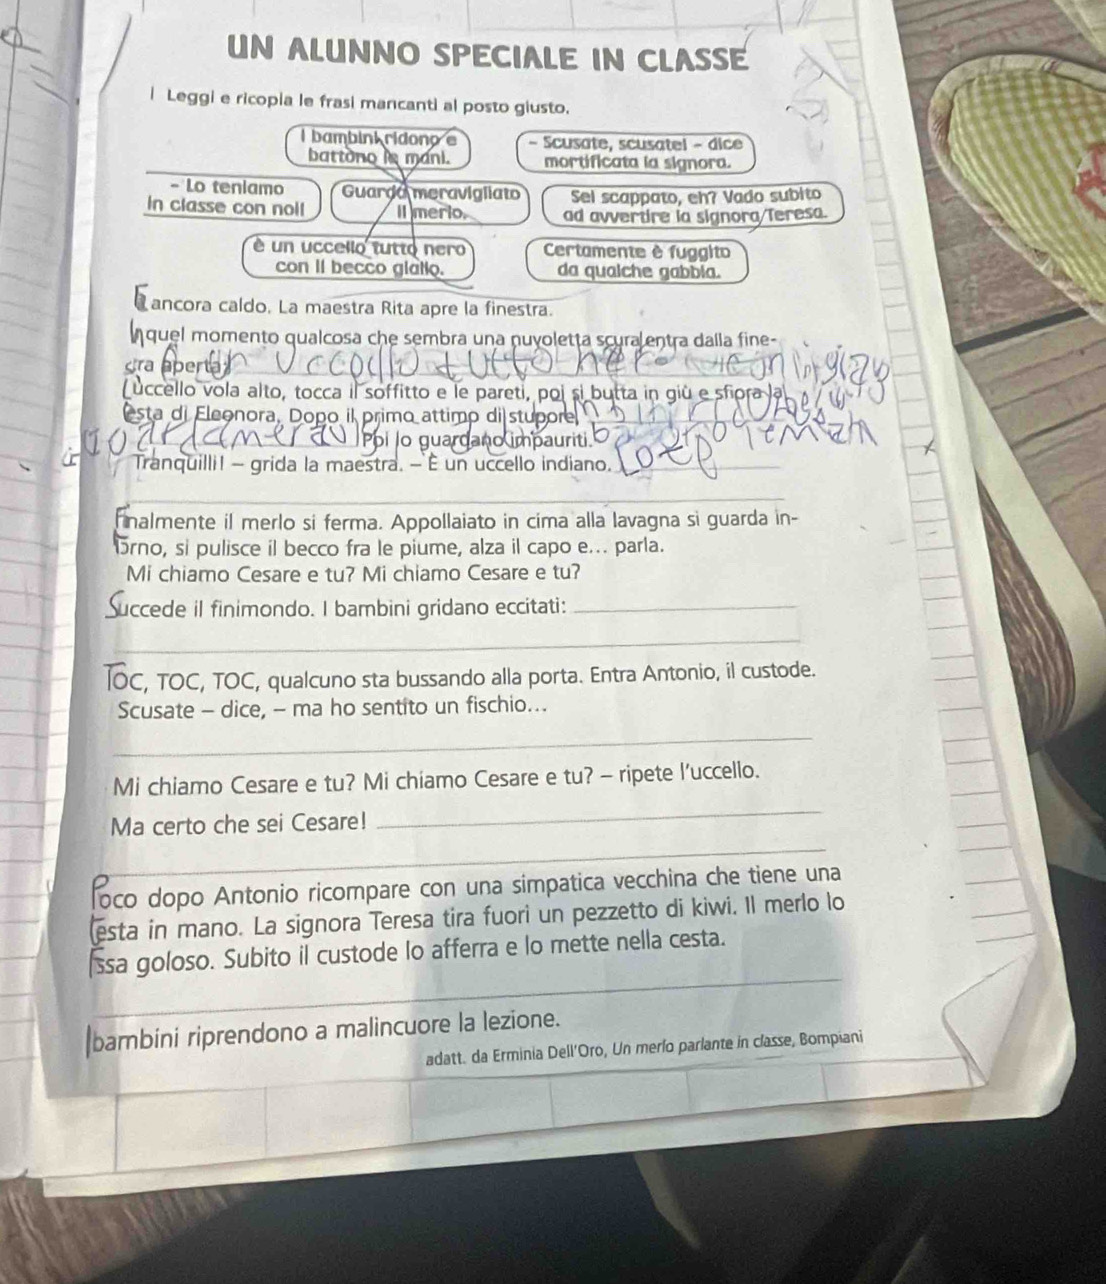 UN ALUNNO SPECIALE IN CLASSE
Leggi e ricopia le frasi mancanti al posto giusto.
I bambini ridono e
battono le mani.
- Scusate, scusate! - dice
mortificata la signora.
- Lo teniamo
in classe con noi!
Guarda meravigliato
il merlo.
Sei scappato, eh? Vado subito
ad avvertire la signora Teresa.
è un uccello tutto nero
con il becco giallo.
Certamente è fuggito
da qualche gabbia.
È ancora caldo. La maestra Rita apre la finestra.
In quel momento qualcosa che sembra una nuvoletta scura entra dalla fine-
stra aperta
uccello tutto nero
L'uccello vola alto, tocca il soffitto e le pareti, poi si butta in giù e sfiora la
testa di Eleonora. Dopo il primo attimo di stupore
Poi lo guardano impauriti.
Tranquilli! – grida la maestra. – È un uccello indiano.
Finalmente il merlo si ferma. Appollaiato in cima alla lavagna si guarda in-
torno, si pulisce il becco fra le piume, alza il capo e... parla.
Mi chiamo Cesare e tu? Mi chiamo Cesare e tu?
Succede il finimondo. I bambini gridano eccitati:
TOC, TOC, TOC, qualcuno sta bussando alla porta. Entra Antonio, il custode.
Scusate – dice, – ma ho sentito un fischio...
Mi chiamo Cesare e tu? Mi chiamo Cesare e tu? – ripete l'uccello.
Ma certo che sei Cesare!
Poco dopo Antonio ricompare con una simpatica vecchina che tiene una
cesta in mano. La signora Teresa tira fuori un pezzetto di kiwi. Il merlo lo
fissa goloso. Subito il custode lo afferra e lo mette nella cesta.
I bambini riprendono a malincuore la lezione.
adatt. da Erminia Dell'Oro, Un merlo parlante in classe, Bompiani